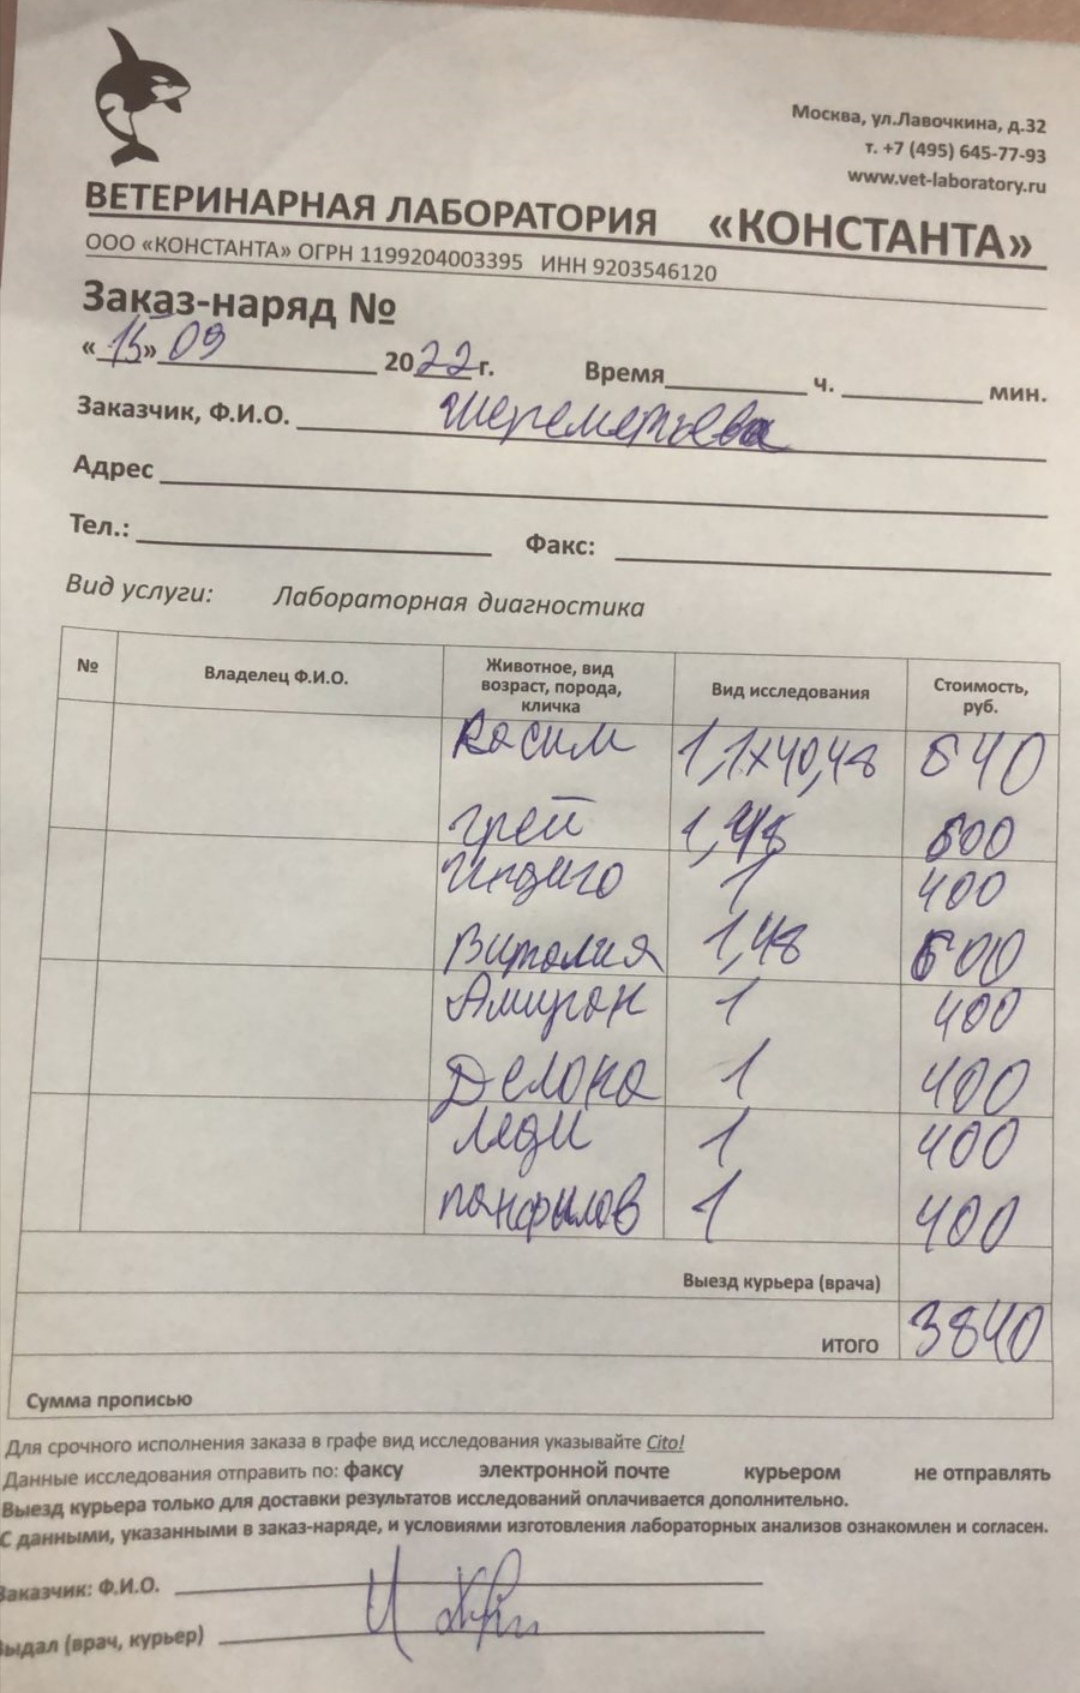 Москва, ул.Лавочкина, д.32
т. +7 (495) 645-77-93
www.vet-laboratory.ru
ВЕТЕРИНАРНАЯ ЛАБОРАТОРИЯ «КОНСТАНТА»
ООО «КОНСТАНТА» ОГРН 1199204003395 ИНН 9203546120
Заказ-наряд №
«15» 09 2022 г. Время ч. мин.
Заказчик, Ф.И.О. Шереметьева
Адрес
Тел.: Факс:
Вид услуги: Лабораторная диагностика
№ Владелец Ф.И.О. Животное, вид возраст, порода, кличка Вид исследования Стоимость, руб.
Касим 1,1x40,48 640
Грей 1,48 600
Индиго 1 400
Виталия 1,48 600
Амиран 1 400
Делона 1 400
Леди 1 400
Панфилов 1 400
Выезд курьера (врача)
итого 3840
Сумма прописью
Для срочного исполнения заказа в графе вид исследования указывайте Cito!
Данные исследования отправить по: факсу электронной почте курьером не отправлять
Выезд курьера только для доставки результатов исследований оплачивается дополнительно.
С данными, указанными в заказ-наряде, и условиями изготовления лабораторных анализов ознакомлен и согласен.
Заказчик: Ф.И.О.
Выдал (врач, курьер)